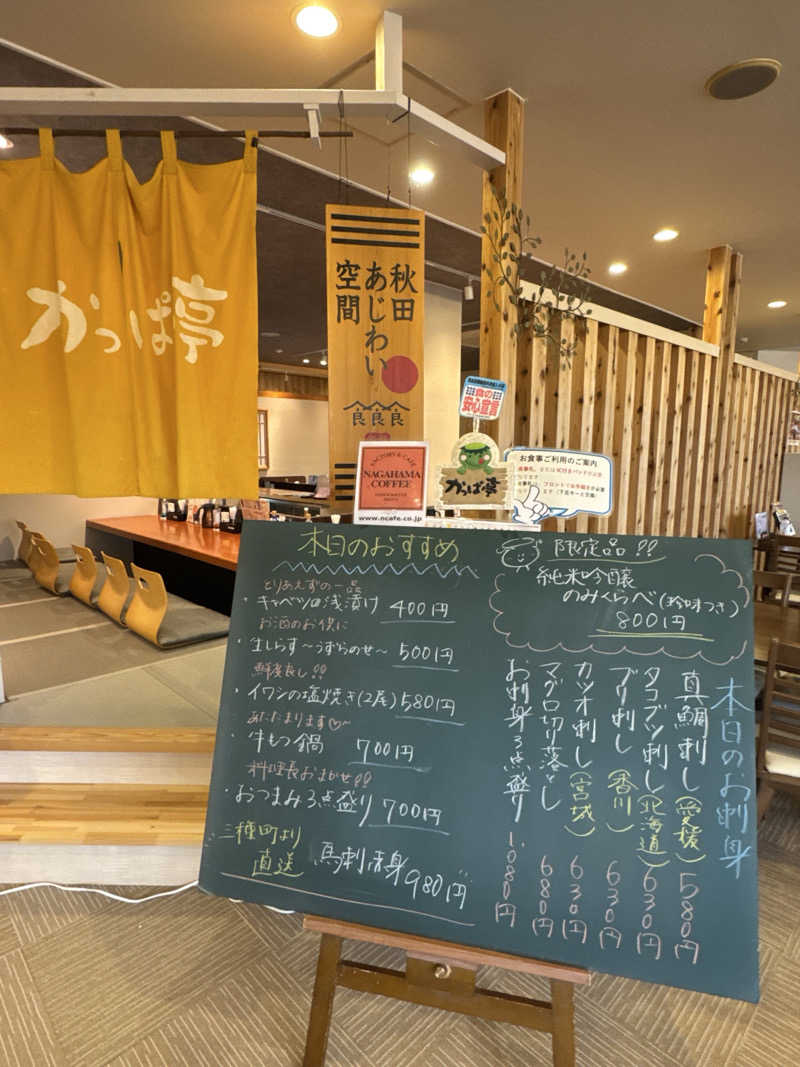 かっぱ亭
秋田
あじわい
空間
食食食
食の
安心宣言
FACTORY & CAFE
NAGAHAMA
COFFEE
www.ncafe.co.jp
かっぱ亭
お食事ご利用のご案内
本日のおすすめ
とりあえずの一品
・キャベツの浅漬け 400円
お酒のお供に
・生しらす〜うずらのせ〜 500円
鮮度良し!!
・イワシの塩焼き(2尾) 580円
あたたまります♡〜
・牛もつ鍋 700円
料理長おまかせ!!
・おつまみ3点盛り 700円
三種町より
直送
馬刺し赤身 980円
限定品!!
純米吟醸
のみくらべ(珍味つき)
800円
本日のお刺身
真鯛刺し(愛媛) 580円
タコブツ刺し(北海道) 630円
ブリ刺し(香川) 630円
カツオ刺し(宮城) 630円
マグロ切り落とし 680円
お刺身3点盛り 1,080円